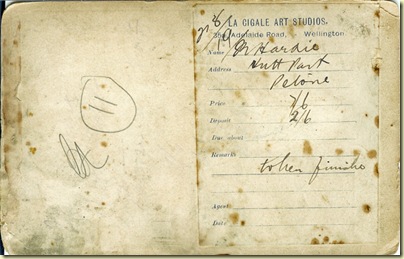 11
LA CIGALE ART STUDIOS,
Adelaide Road, Wellington
Name Hardie
Address Hutt
Petone
Price 7/6
Deposit 2/6
Due about
Remarks
token
Agent
Date